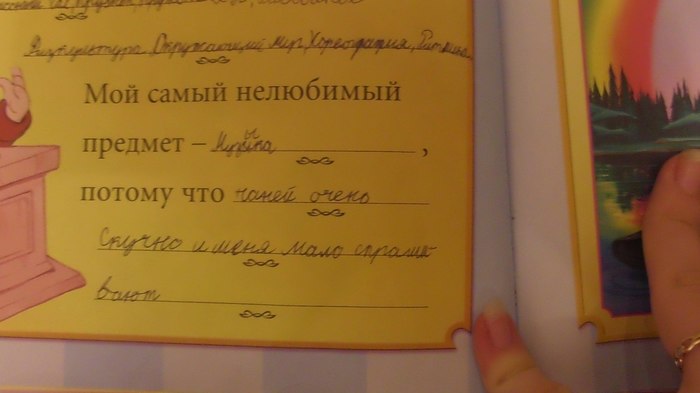 Физкультура, Окружающий мир, Хореография, Ритмика.
Мой самый нелюбимый
предмет – Музыка ,
потому что наней очень
Скучно и меня мало спраши
вают